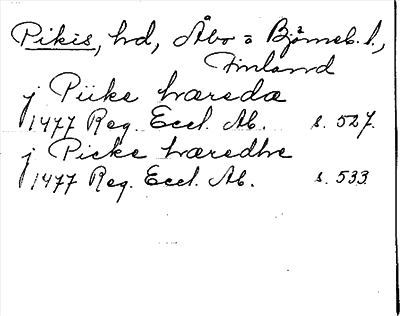 Pikis, hd, Åbo o Björneb. l.,
Finland
j Piike hæredæ
1477 Reg. Eccl. Ab. s. 527.
j Picke hæredhe
1477 Reg. Eccl. Ab. s. 533